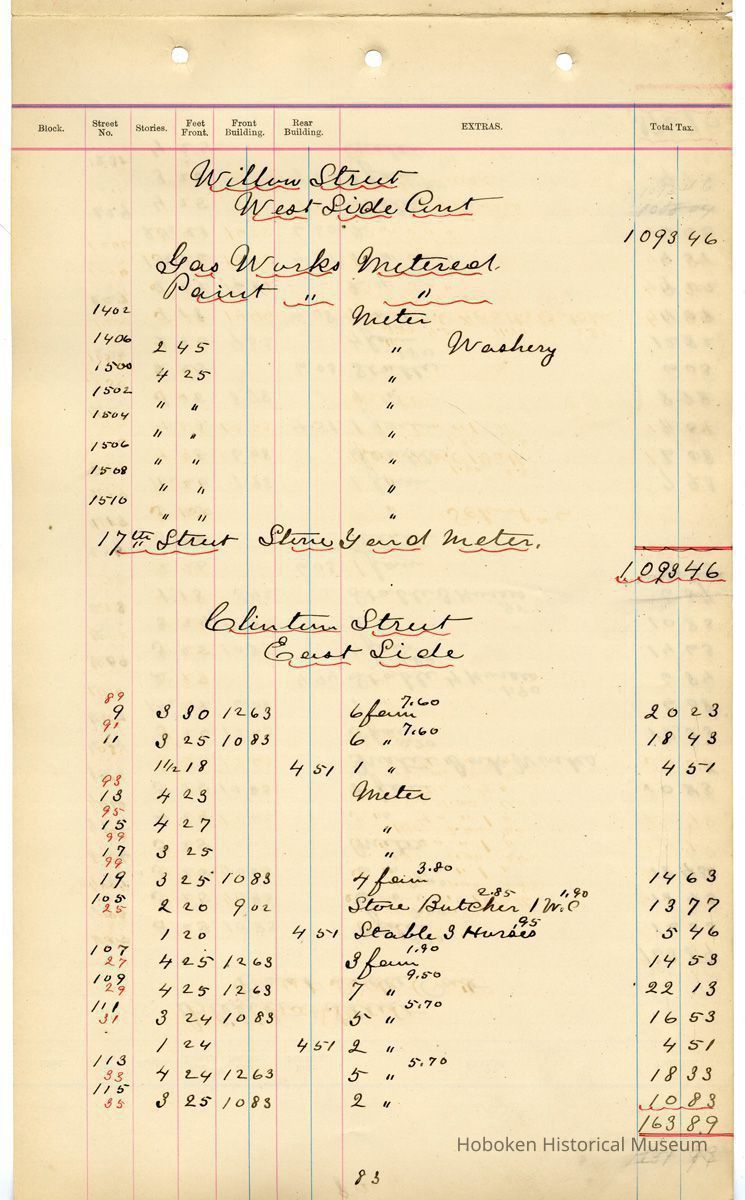 Block. Street No. Stories. Feet Front. Front Building. Rear Building. EXTRAS. Total Tax.
Willow Street
West Side Cont
1093 46
Gas Works Metered.
Paint " "
1402 Meter
1406 2 45 " Washery
1500 4 25 "
1502 " " "
1504 " " "
1506 " " "
1508 " " "
1510 " " "
17th Street Stone Yard Meter.
1093 46
Clinton Street
East Side
89
9 3 30 12 63 6 fam 7.60 20 23
91
11 3 25 10 83 6 " 7.60 18 43
1 1/2 18 4 51 1 " 4 51
93
13 4 23 Meter
95
15 4 27 "
99
17 3 25 "
99
19 3 25 10 83 4 fam 3.80 14 63
105
25 2 20 9 02 Store Butcher 2.85 1 W.C 1.90 13 77
1 20 4 51 Stable 3 Horses 95 5 46
107
27 4 25 12 63 3 fam 1.90 14 53
109
29 4 25 12 63 7 " 9.50 22 13
111
31 3 24 10 83 5 " 5.70 16 53
1 24 4 51 2 " 4 51
113
33 4 24 12 63 5 " 5.70 18 33
115
35 3 25 10 83 2 " 10 83
163 89
Hoboken Historical Museum
83